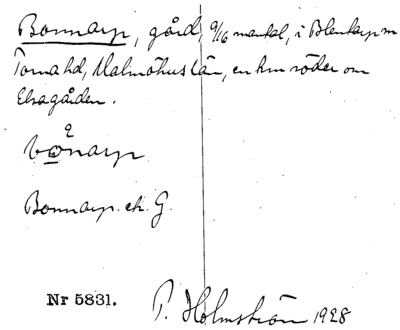 Bonnarp, gård, 9/16 mantal, i Blentarp sn
Torna hd, Malmöhus län, en km söder om
Elsagården.
bònarp
Bonnarp ek. G.
Nr 5831.
P. Holmström 1928